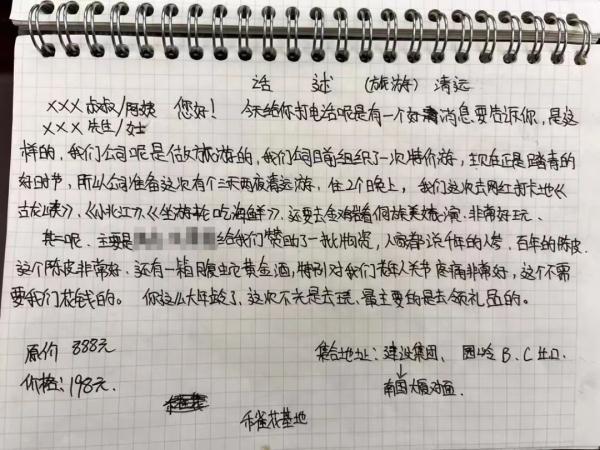 话 述 （旅游） 清远
××× 叔叔/阿姨 您好！ 今天给你打电话呢是有一个好消息要告诉你，是这
××× 先生/女士
样的，我们公司呢是做旅游的，我们公司目前组织了一次特价游，现在正是踏青的
好时节，所以公司准备这次有个三天两夜清远游，住2个晚上，我们这次去网红打卡地《
古龙峡》、《小北江》、《坐游轮吃海鲜》、还要去金鸡岩看侗族美女表演、非常好玩、
其二呢、主要是 给我们赞助了一批物资，人家都说千年的人参、百年的陈皮、
这个陈皮非常好、还有一箱眼蛇黄金酒，特别对我们老年人关节疼痛非常好，这个不需
要我们花钱的。 你这么大年龄了，这次不光是去玩、最主要的是去领礼品的。
原价 888元
价格：198元．
集合地址：建设集团、园岭 B、C出口．
↓
南国大厦对面．
禾雀花基地